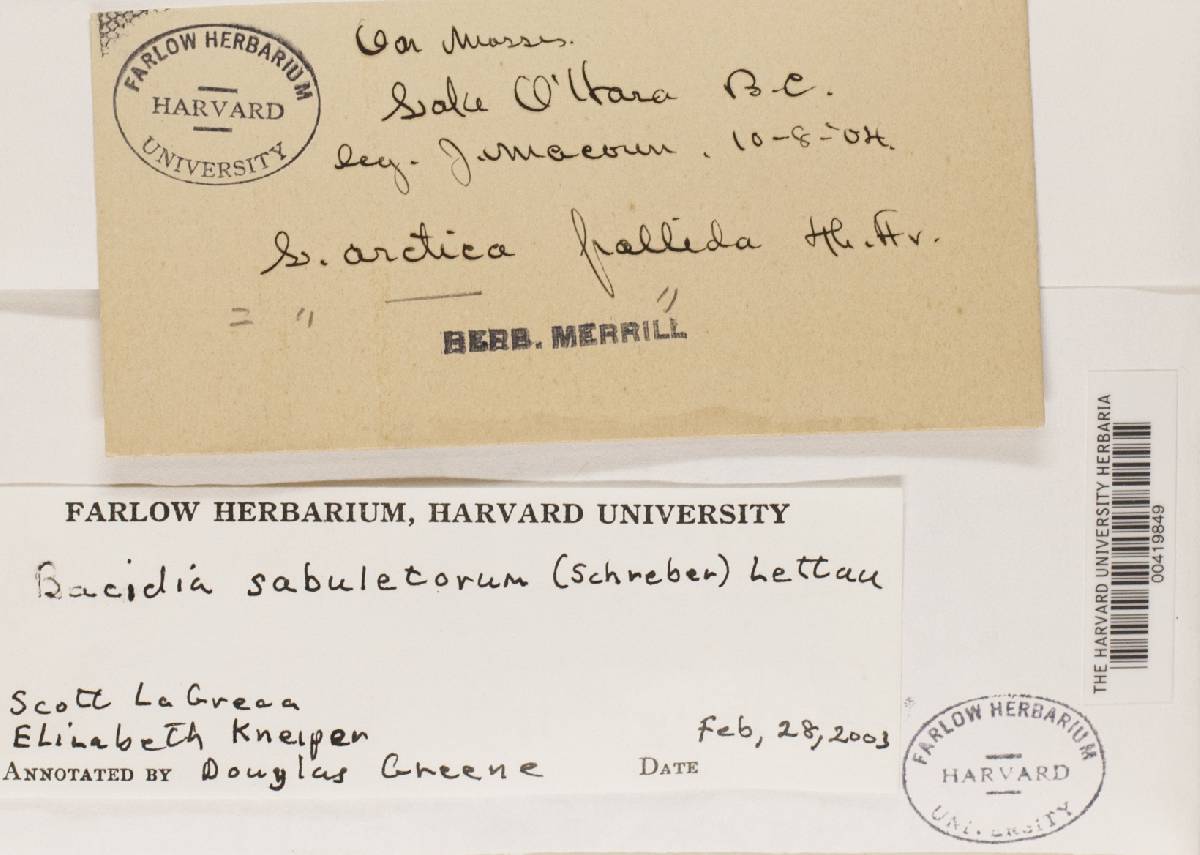 FARLOW HERBARIUM
HARVARD
UNIVERSITY
On Mosses.
Lake O'Hara B.C.
leg. J. Macoun. 10-8-04.
L. arctica pallida
= " "
HERB. MERRILL
FARLOW HERBARIUM, HARVARD UNIVERSITY
Bacidia sabuletorum (Schreber) Lettau
Scott LaGreca
Elizabeth Kneiper
ANNOTATED BY Douglas Greene
Feb, 28, 2003
DATE
THE HARVARD UNIVERSITY HERBARIA
00419849
FARLOW HERBARIUM
HARVARD
UNIVERSITY